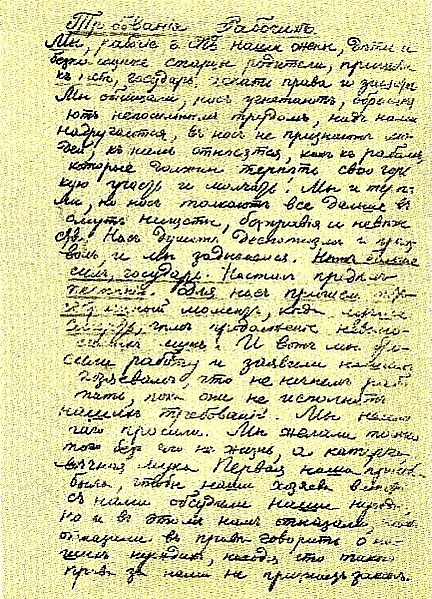 Требованія Рабочихъ.
Мы, рабоч. г. СПБ наши жены, дѣти и
безпомощные старцы родители, пришли
къ тебѣ, государь искать права и защиты
Мы обнищали, насъ угнетаютъ, обременя
ютъ непосильнымъ трудомъ, надъ нами
надругаются, въ насъ не признаютъ лю-
дей, къ намъ относятся, какъ къ рабамъ,
которые должны терпѣть свою горь
кую участь и молчать! Мы и терпѣ-
ли, но насъ толкаютъ все дальше въ
омутъ нищеты, безправія и невѣже
ства. Насъ душатъ деспотизмъ и произ
волъ, и мы задыхаемся. Нѣтъ больше
силъ, государь. Насталъ предѣлъ
терпѣнію. Для насъ пришелъ тотъ
страшный моментъ, когда лучше
смерть, чѣмъ продолженіе невыно-
симыхъ мукъ. И вотъ мы бро-
сили работу и заявили нашимъ
хозяевамъ, что не начнемъ рабо
тать, пока они не исполнятъ
нашихъ требованій. Мы немно
гаго просили. Мы желали только
того безъ чего не жизнь, а каторга
вѣчная мука. Первая наша просьба
была, чтобы наши хозяева вмѣстѣ
съ нами обсудили наши нужды,
но и въ этомъ намъ отказали, намъ
отказали въ правѣ говорить о на-
шихъ нуждахъ, находя, что такого
права за нами не признаетъ законъ.